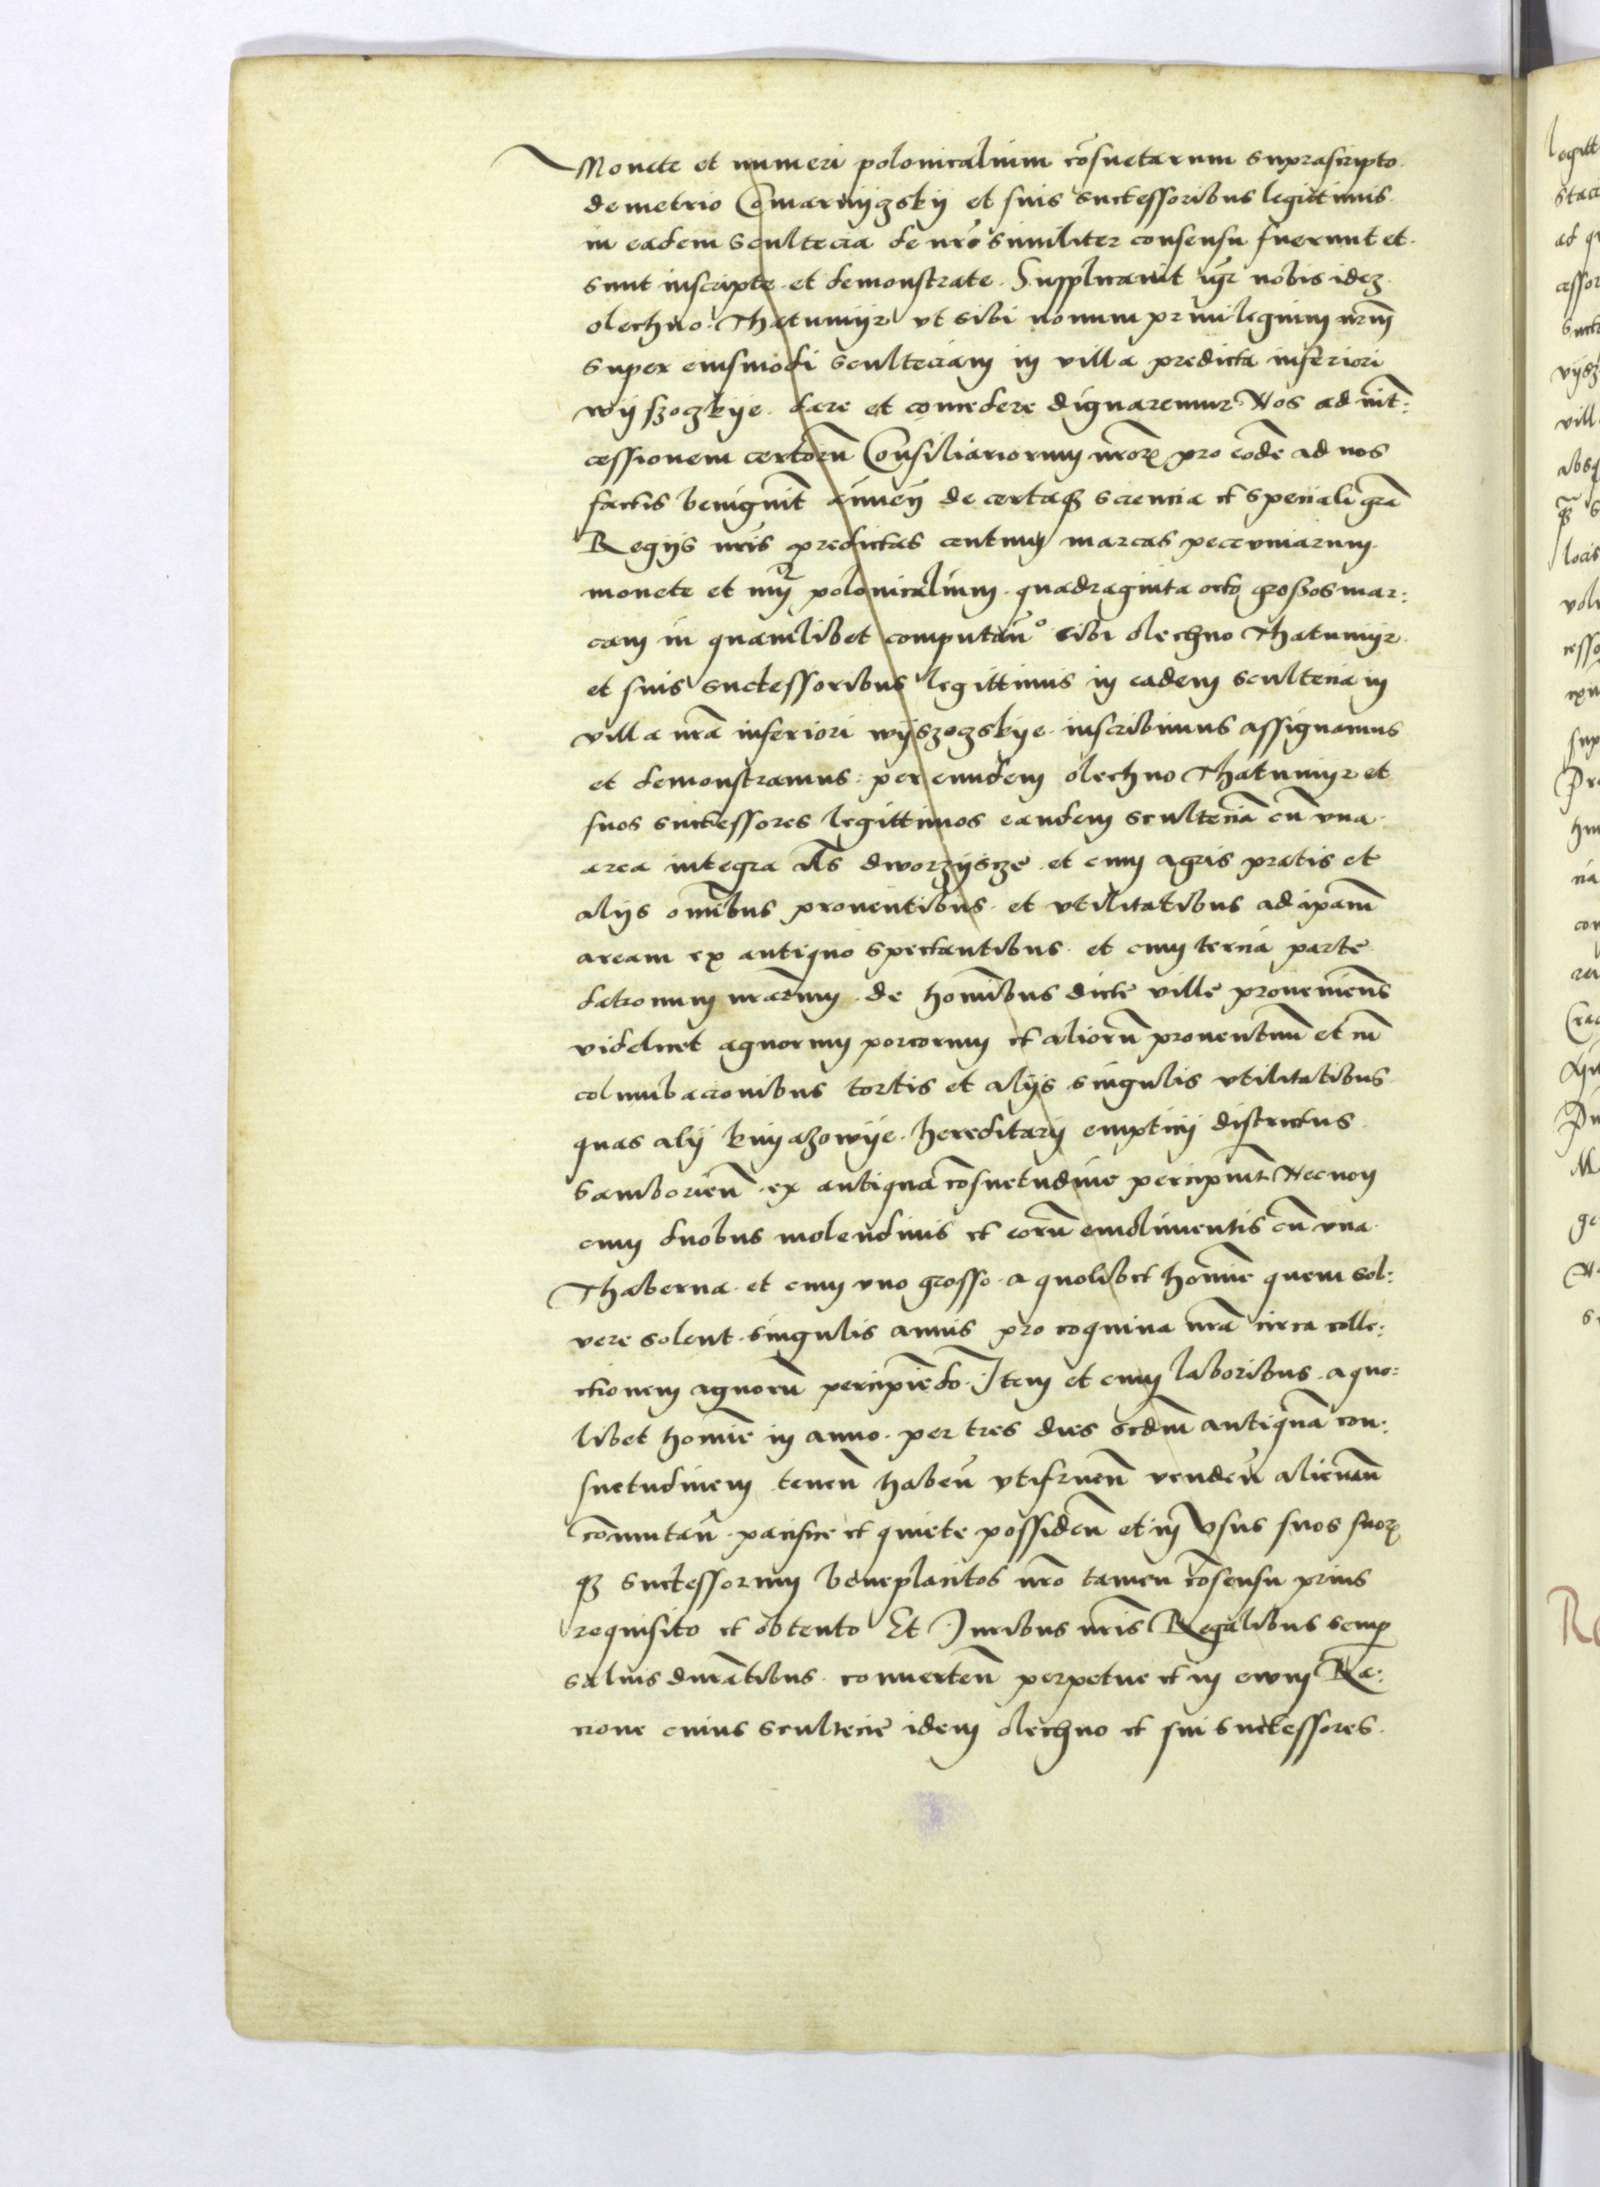 Monete et numeri polonicalium cōsuetarum suprascripto
demetrio Comarnyiczskij et suis successoribus legittimis
in eadem scultecia de nr̄o similiter consensu fuerunt et
sunt inscripte et demonstrate. Supplicauit igr̄ nobis idez
olechno Thatumyr vt sibi nouum priuilegium nr̄m
super eiusmodi sculteciam in villa predicta inferiori
wijszoczkije dare et concedere dignaremur Nos ad int̄:
cessionem certorū Consiliariorum nr̄oꝝ pro eodē ad nos
factis benignit̄ annuen̄ de certaqꝫ sciencia et speciali gr̄a
Regijs nr̄is predictas centum marcas pecuniarum
monete et nūj polonicalium quadraginta octo grossos mar:
cam in quamlibet computan̄º sibi olechno Thatumyr
et suis successoribus legittimis in eadem scultecia in
villa nr̄a inferiori wijszoczskije inscribimus assignamus
et demonstramus: per eundem olechno Thatumyr et
suos successores legittimos eandem sculteciā cū vna
area integra als dworzijscze et cum agris pratis et
alijs om̄ibus prouentibus et vtilitatibus ad ip̄am
aream ex antiquo spectantibus et cum tercia parte
datronum nr̄arum de hom̄ibus dicte ville prouenien̄
videlicet agnorum porcorum et aliorū prouentuū et cū
columbacionibus tortis et alijs singulis vtilitatibus
quas alij knijazowije hereditarij empticij districtus
Samborien̄ ex antiqua cōsuetudine percipiunt Necnon
cum duobus molendinis et eorū emolimentis cū vna
Thaberna et cum vno grosso a quolibet homīe quem sol:
vere solent singulis annis pro coquina nr̄a circa colle:
ctionem agnorū percipiēdo Item et cum laboribus a quo:
libet homīe in anno per tres dies scdm̄ antiquā con:
suetudinem tenen̄ haben̄ vtifruen̄ venden̄ alienan̄
cōmutan̄ pacifice et quiete possiden̄ et in vsus suos suoꝝ
qꝫ successorum beneplacitos nr̄o tamen cōsensu prius
requisito et obtento Et Juribus nr̄is Regalibus semp̱
saluis durātibus conuerten̄ perpetue et in ewm Ra:
cione cuius scultecie idem olechno et sui successores